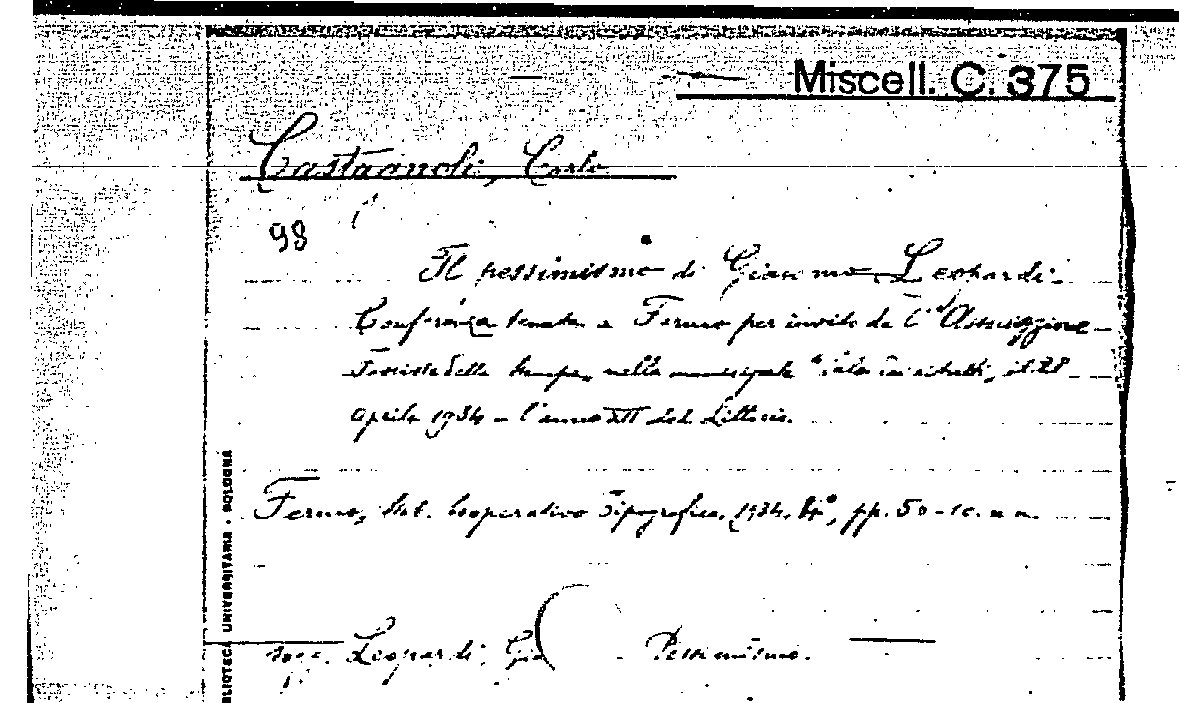 Miscell. C. 375
Castagnoli, Carlo
98
Il pessimismo di Giacomo Leopardi.
Conferenza tenuta a Fermo per invito de l'Associazione
Fascista della Stampa, nella municipale "Sala dei ritratti", il 28
aprile 1934 - l'anno XII del Littorio.
Fermo, Stab. Cooperativo Tipografico, 1934, 4°, pp. 50-1c. n n.
sogg. Leopardi, Gia Pessimismo.
BLIOTECA UNIVERSITARIA - BOLOGNA